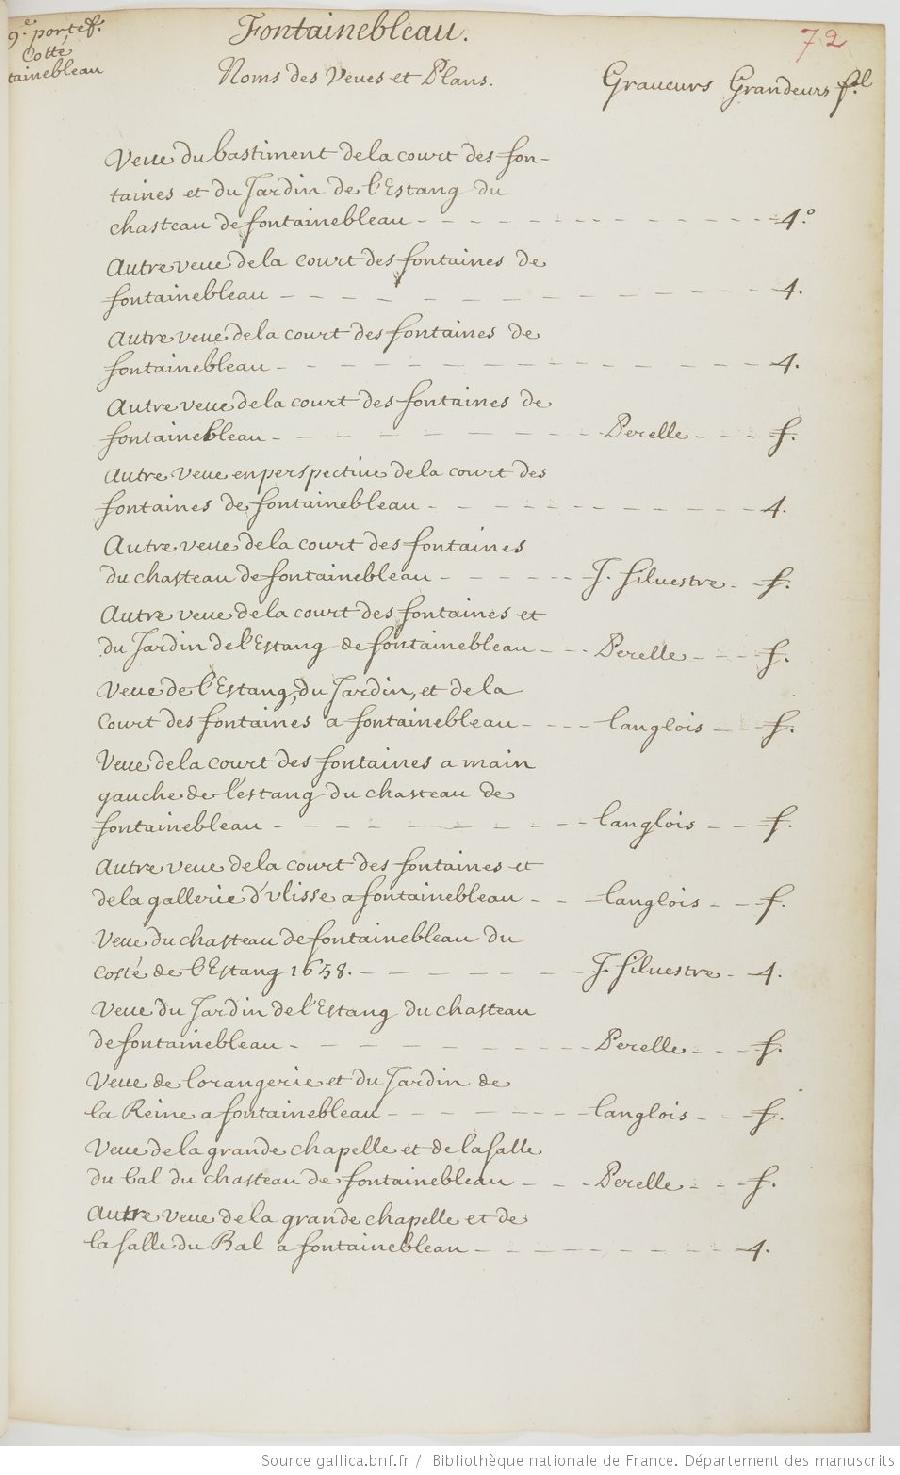 9.e portef.
Cotté
tainebleau
Fontainebleau.
72
Noms des Veues et Plans. Graueurs Grandeurs f.l
Veue du bastiment de la court des fon-
taines et du Jardin de l'Estang du
chasteau de fontainebleau - - - - - - - - - 4.°
Autre veue de la court des fontaines de
fontainebleau - - - - - - - - - 4.
Autre veue de la court des fontaines de
fontainebleau - - - - - - - - - 4.
Autre veue de la court des fontaines de
fontainebleau - - - - - - Perelle - - - f.
Autre veue en perspectiue de la court des
fontaines de fontainebleau - - - - - - - - - 4.
Autre veue de la court des fontaines
du chasteau de fontainebleau - - - - - J. Siluestre - f.
Autre veue de la court des fontaines et
du Jardin de l'Estang de fontainebleau - - - Perelle - - - f.
Veue de l'Estang, du Jardin, et de la
Court des fontaines a fontainebleau - - - langlois - - f.
Veue de la court des fontaines a main
gauche de l'estang du chasteau de
fontainebleau - - - - - - - langlois - - f.
Autre veue de la court des fontaines et
de la gallerie d'Vlisse a fontainebleau - - langlois - - f.
Veue du chasteau de fontainebleau du
costé de l'Estang 1658. - - - - - - J. Siluestre - 4.
Veue du Jardin de l'Estang du chasteau
de fontainebleau - - - - - - - Perelle - - - f.
Veue de lorangerie et du Jardin de
la Reine a fontainebleau - - - - - - langlois - - f.
Veue de la grande chapelle et de la salle
du bal du chasteau de fontainebleau - - - Perelle - - - f.
Autre veue de la grande chapelle et de
la salle du Bal a fontainebleau - - - - - - - - 4.
Source gallica.bnf.fr / Bibliothèque nationale de France. Département des manuscrits